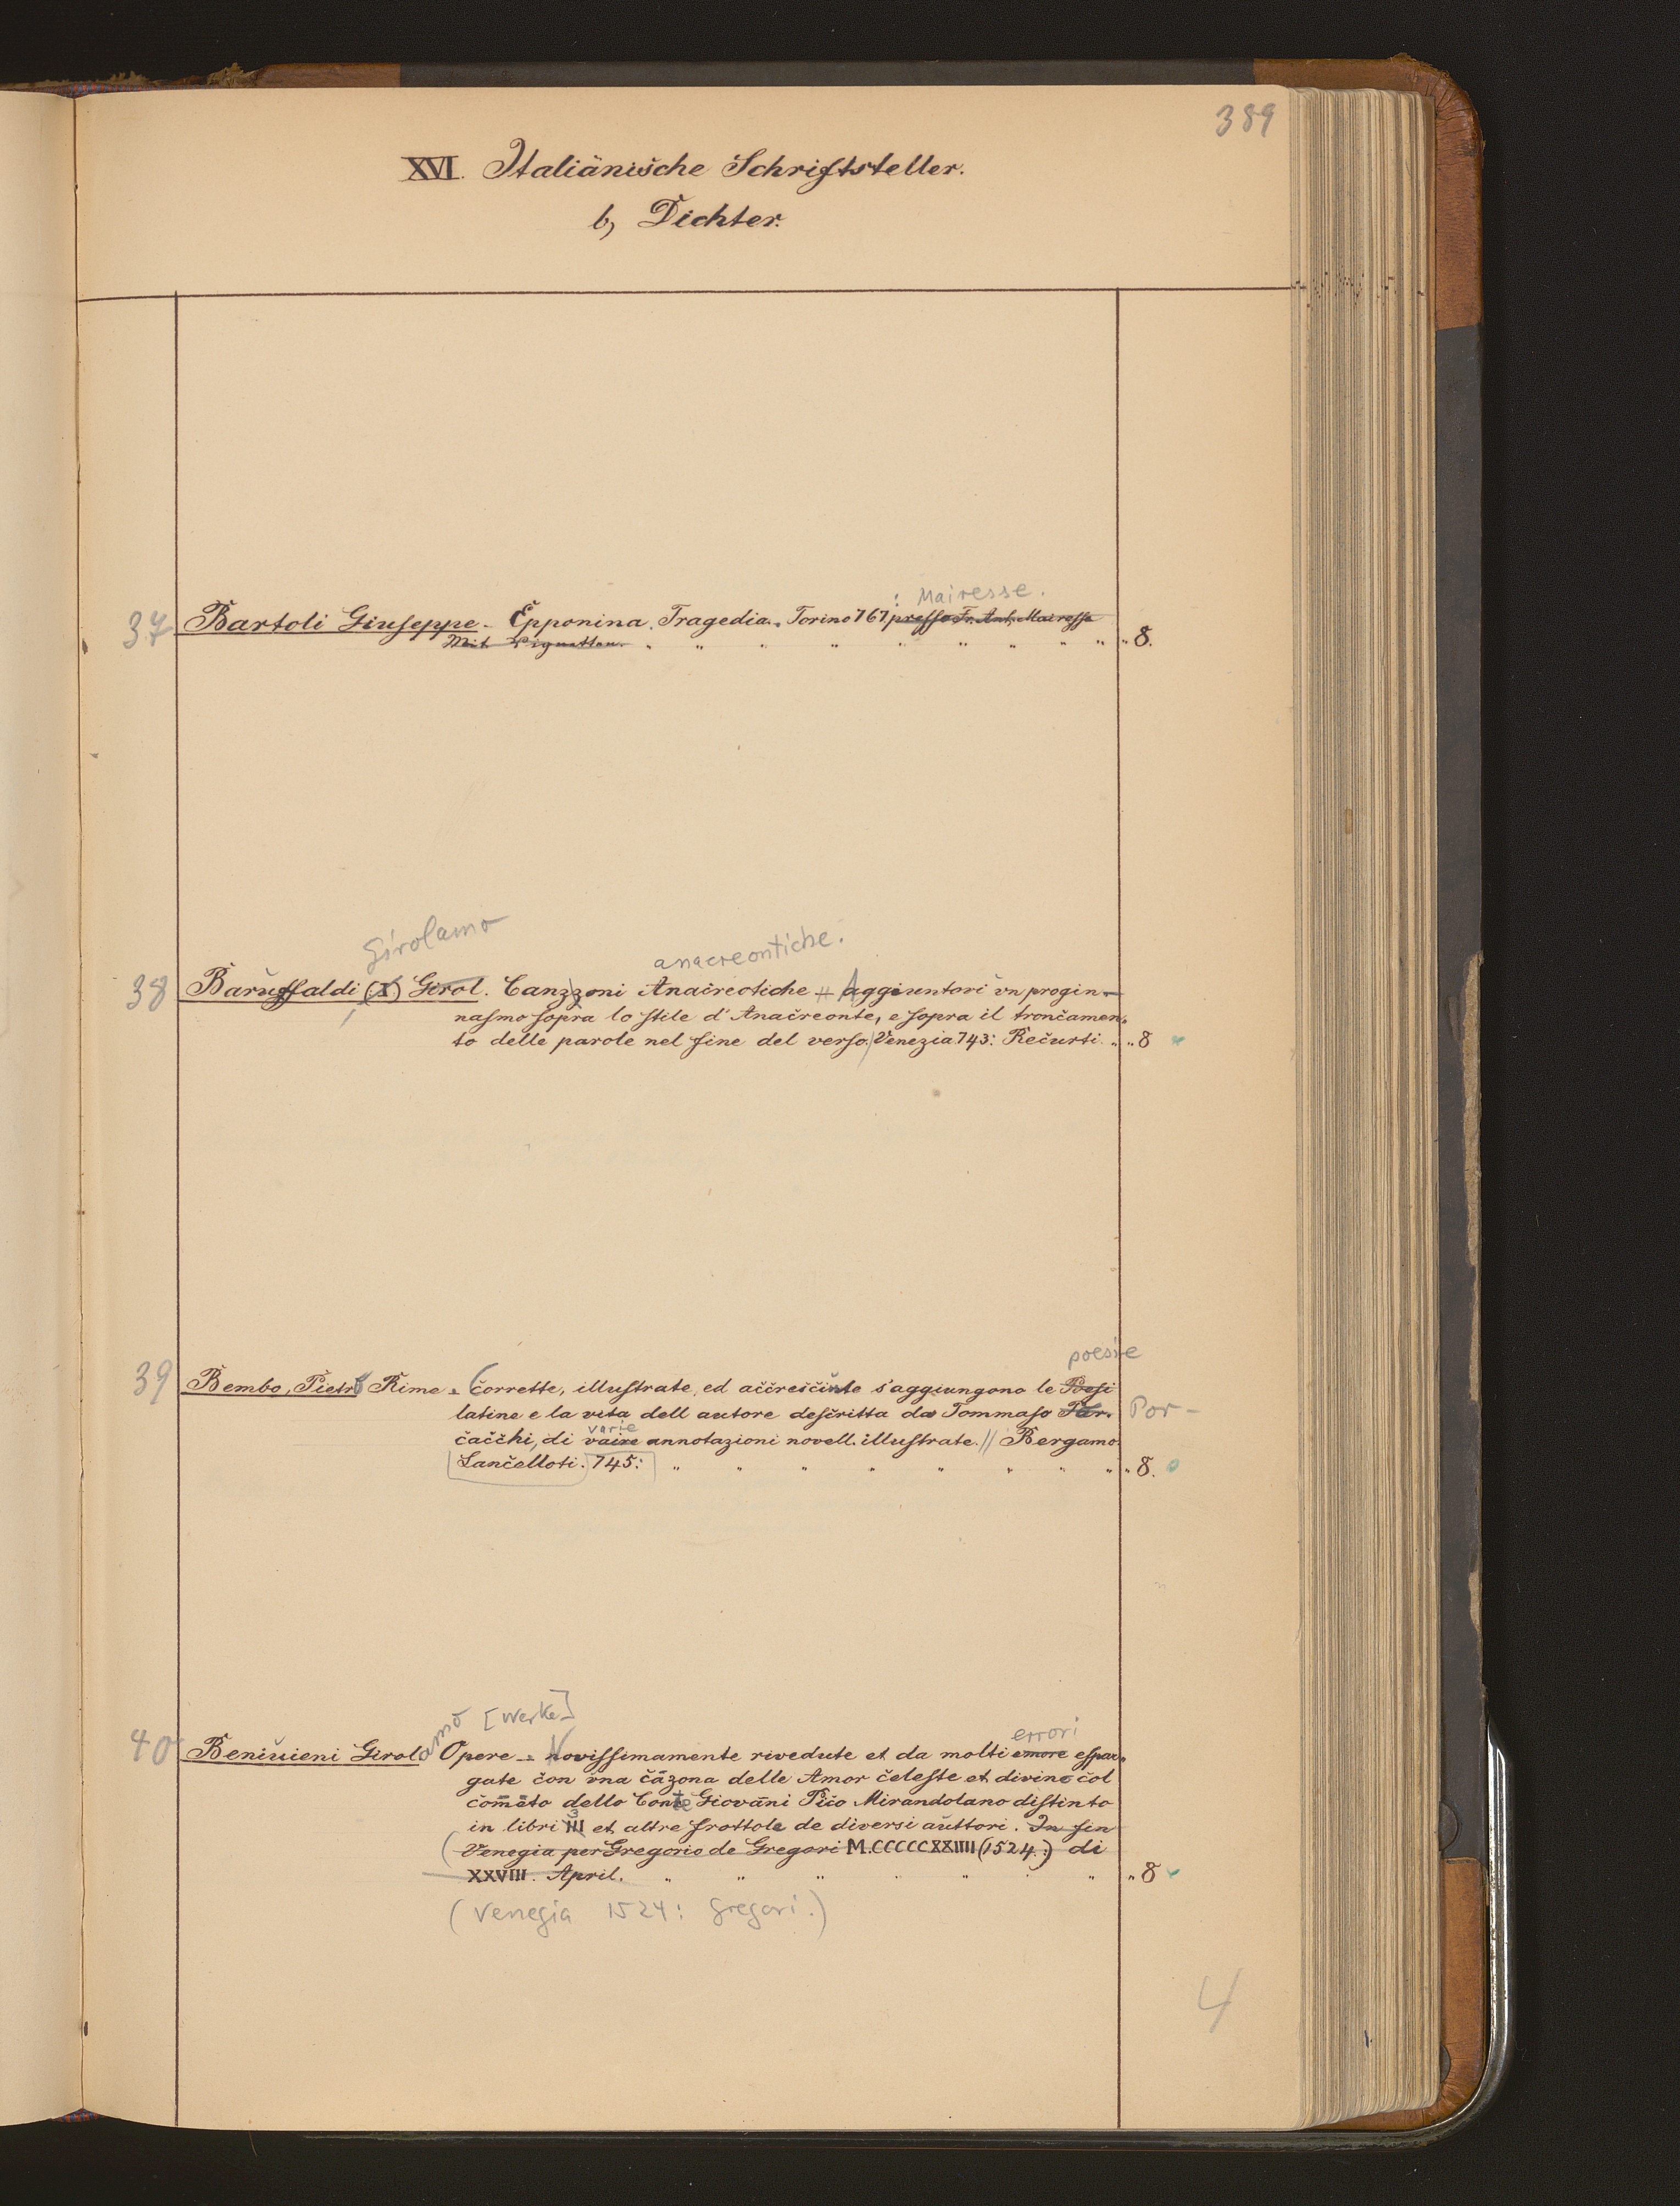 389
XVI. Italiänische Schriftsteller.
b, Dichter.
: Mairesse.
37 Bartoli Giuseppe - Epponina. Tragedia. Torino 767 presso Fr. Ant. Mairesse
Mit Vignetten. " " " " " " " " " " 8.
Girolamo
anacreontiche.
38 Baruffaldi (I) Girol. Canzzoni Anaireotiche # Aggiuntovi un progin-
nasmo sopra lo stile d'Anacreonte, e sopra il troncamen-
to delle parole nel fine del verso. / Venezia 743: Recurti. " " 8
poesie
39 Bembo, Pietro Rime - Corrette, illustrate, ed accresciute s'aggiungono le Poesi
latine e la vita dell autore descritta da Tommaso Par. Por-
varie
cacchi, di vaire annotazioni novell. illustrate. // Bergamo.
Lancelloti. 745: " " " " " " " " " 8.
amo [Werke]
errori
40 Beniuieni Girol. Opere - Novissimamente rivedute et da molti emore espur-
gate con una cāzona delle Amor celeste et divino col
comēto dello Conte Giovāni Pico Mirandolano distinto
3
in libri III et altre frottole de diversi auttori. In fin
(Venegia per Gregorio de Gregori M.CCCCCXXIIII (1524.:) di
XXVIII. April. " " " " " " " " 8
(Venegia 1524: Gregori.)
4